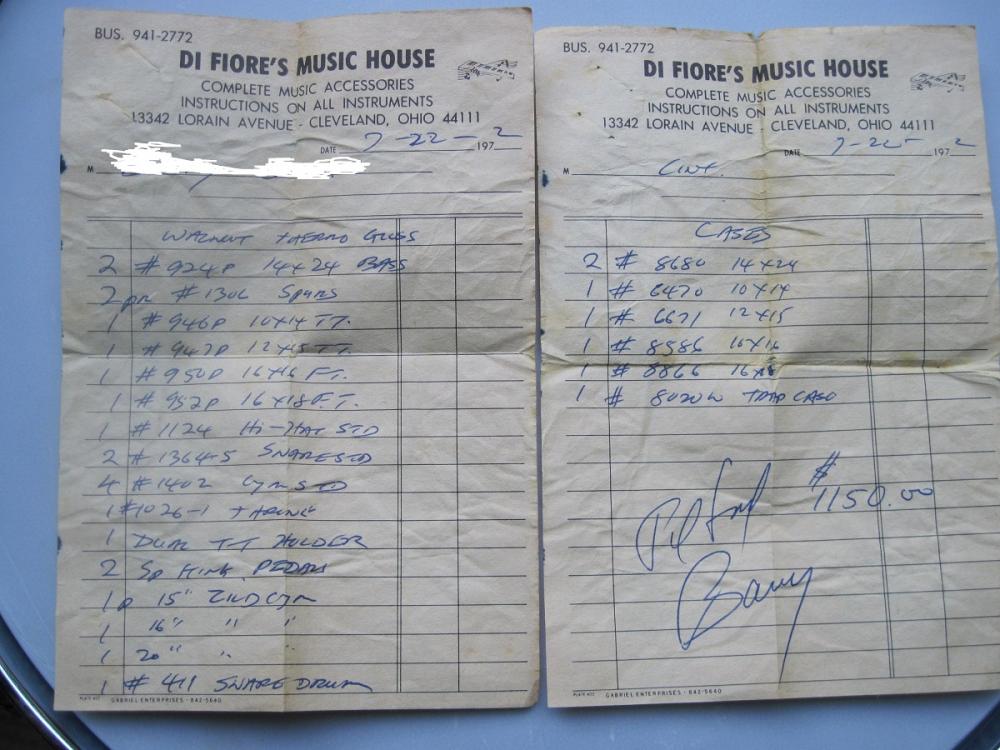 BUS. 941-2772
DI FIORE'S MUSIC HOUSE
COMPLETE MUSIC ACCESSORIES
INSTRUCTIONS ON ALL INSTRUMENTS
13342 LORAIN AVENUE - CLEVELAND, OHIO 44111
DATE 7-22-2 197
M
WALNUT THERMO GLOSS
2 # 924P 14x24 BASS
2 pr #1306 Spurs
1 # 946P 10x14 TT.
1 # 947P 12x15 TT.
1 # 950P 16x16 FT.
1 # 952P 16x18 F.T.
1 # 1124 Hi-HAT STD
2 # 1364-5 SNARE STD
4 #1402 Cym STD
1 #1026-1 THRONE
1 DUAL TT HOLDER
2 Sp King PEDALS
1 p 15" ZILD Cym
1 16" " "
1 20" " "
1 # 411 SNARE DRUM
PLATE 422 GABRIEL ENTERPRISES - 842-5640
BUS. 941-2772
DI FIORE'S MUSIC HOUSE
COMPLETE MUSIC ACCESSORIES
INSTRUCTIONS ON ALL INSTRUMENTS
13342 LORAIN AVENUE - CLEVELAND, OHIO 44111
DATE 7-22- 197 2
M Cont.
CASES
2 # 8680 14x24
1 # 6470 10x14
1 # 6671 12x15
1 # 8586 16x16
1 # 8866 16x18
1 # 8020W TRAP CASE
Pd Full $1150.00
Barry
PLATE 422 GABRIEL ENTERPRISES - 842-5640